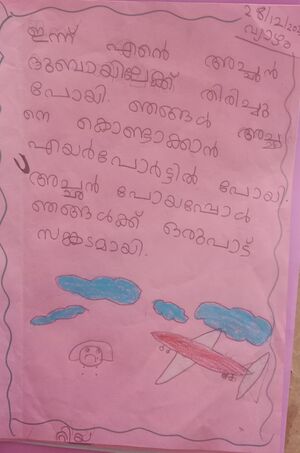 28/12/202
വ്യാഴം
ഇന്ന് എന്റെ അച്ഛൻ
ദുബായിലേക്ക് തിരിച്ചു
പോയി. ഞങ്ങൾ അച്ഛ
നെ കൊണ്ടാക്കാൻ
എയർപോർട്ടിൽ പോയി.
അച്ഛൻ പോയപ്പോൾ
ഞങ്ങൾക്ക് ഒരുപാട്
സങ്കടമായി.